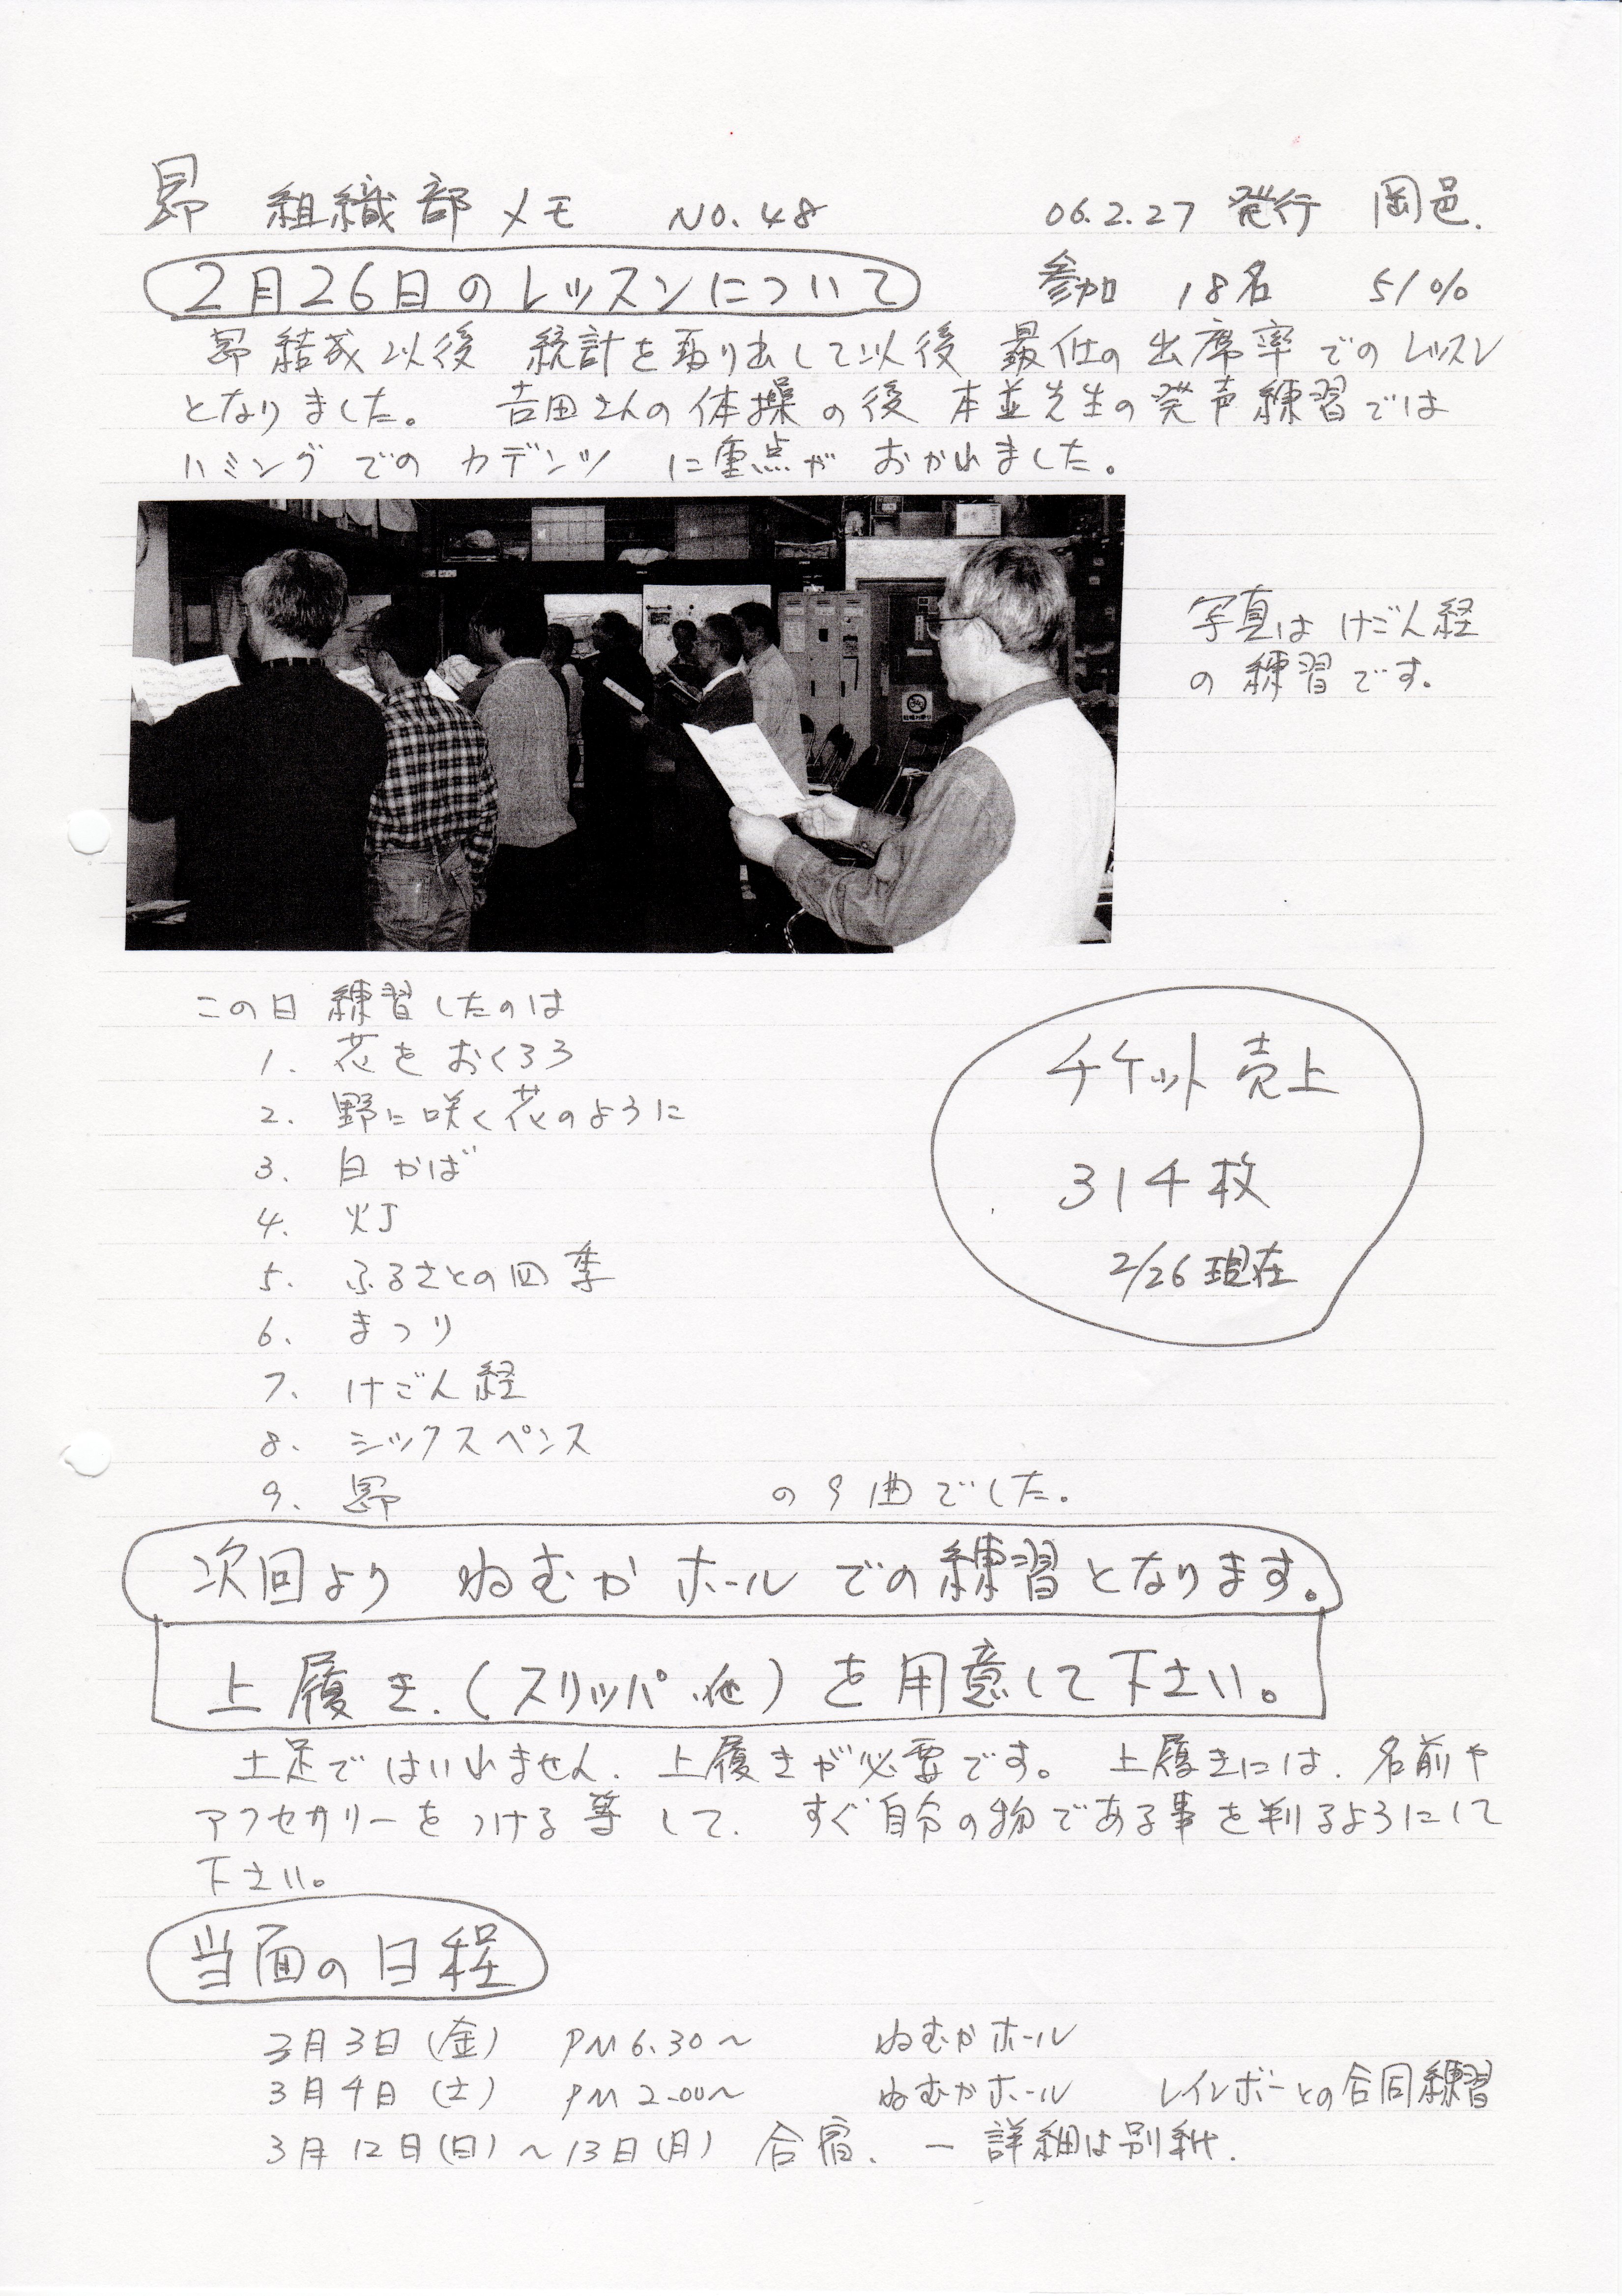 昴 組織部メモ NO.48 06.2.27 発行 岡邑.
2月26日のレッスンについて 参加 18名 51%
昴結成以後 統計を取り出して以後 最低の出席率でのレッスン
となりました。 吉田さんの体操の後 本並先生の発声練習では
ハミングでのカデンツに重点がおかれました。
写真はけごん経
の練習です。
この日練習したのは
1. 花をおくろう
2. 野に咲く花のように
3. 白かば
4. 灯
5. ふるさとの四季
6. まつり
7. けごん経
8. シックスペンス
9. 昴 の9曲でした。
チケット売上
314枚
2/26現在
次回より ねむかホールでの練習となります。
上履き.(スリッパ.他)を用意して下さい。
土足でははいれません. 上履きが必要です。 上履きには. 名前や
アクセサリーをつける等して. すぐ自分の物である事を判るようにして
下さい。
当面の日程
3月3日(金) PM6.30〜 ねむかホール
3月4日(土) PM2.00〜 ねむかホール レインボーとの合同練習
3月12日(日)〜13日(月) 合宿. ー 詳細は別紙.